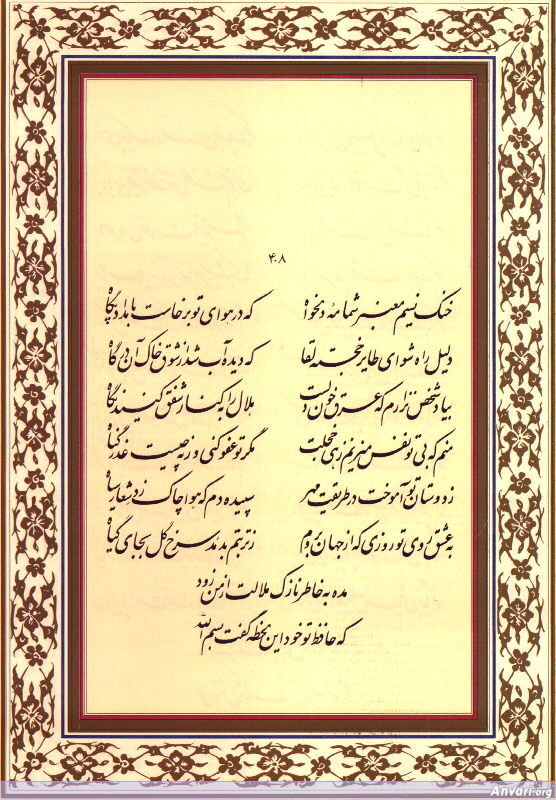 ۴۰۸
خنک نسیم معنبر شمامهٔ دلخواه که در هوای تو برخاست بامداد پگاه
دلیل راه شو ای طایر خجسته لقا که دیده آب شد از شوق خاک آن درگاه
بیاد شخص نزارم که غرق خون دلست هلال را به کنار شفق کنید نگاه
منم که بی تو نفس میزنم زهی خجلت مگر تو عفو کنی ورنه چیست عذر گناه
ز دوستان تو آموخت در طریقت مهر سپیده دم که هوا چاک زد شعار سیاه
به عشق روی تو روزی که از جهان بروم ز تربتم بدمد سرخ گل بجای گیاه
مده به خاطر نازک ملالت از من زود
که حافظ تو خود این لحظه گفت بسم الله
Anvari.org